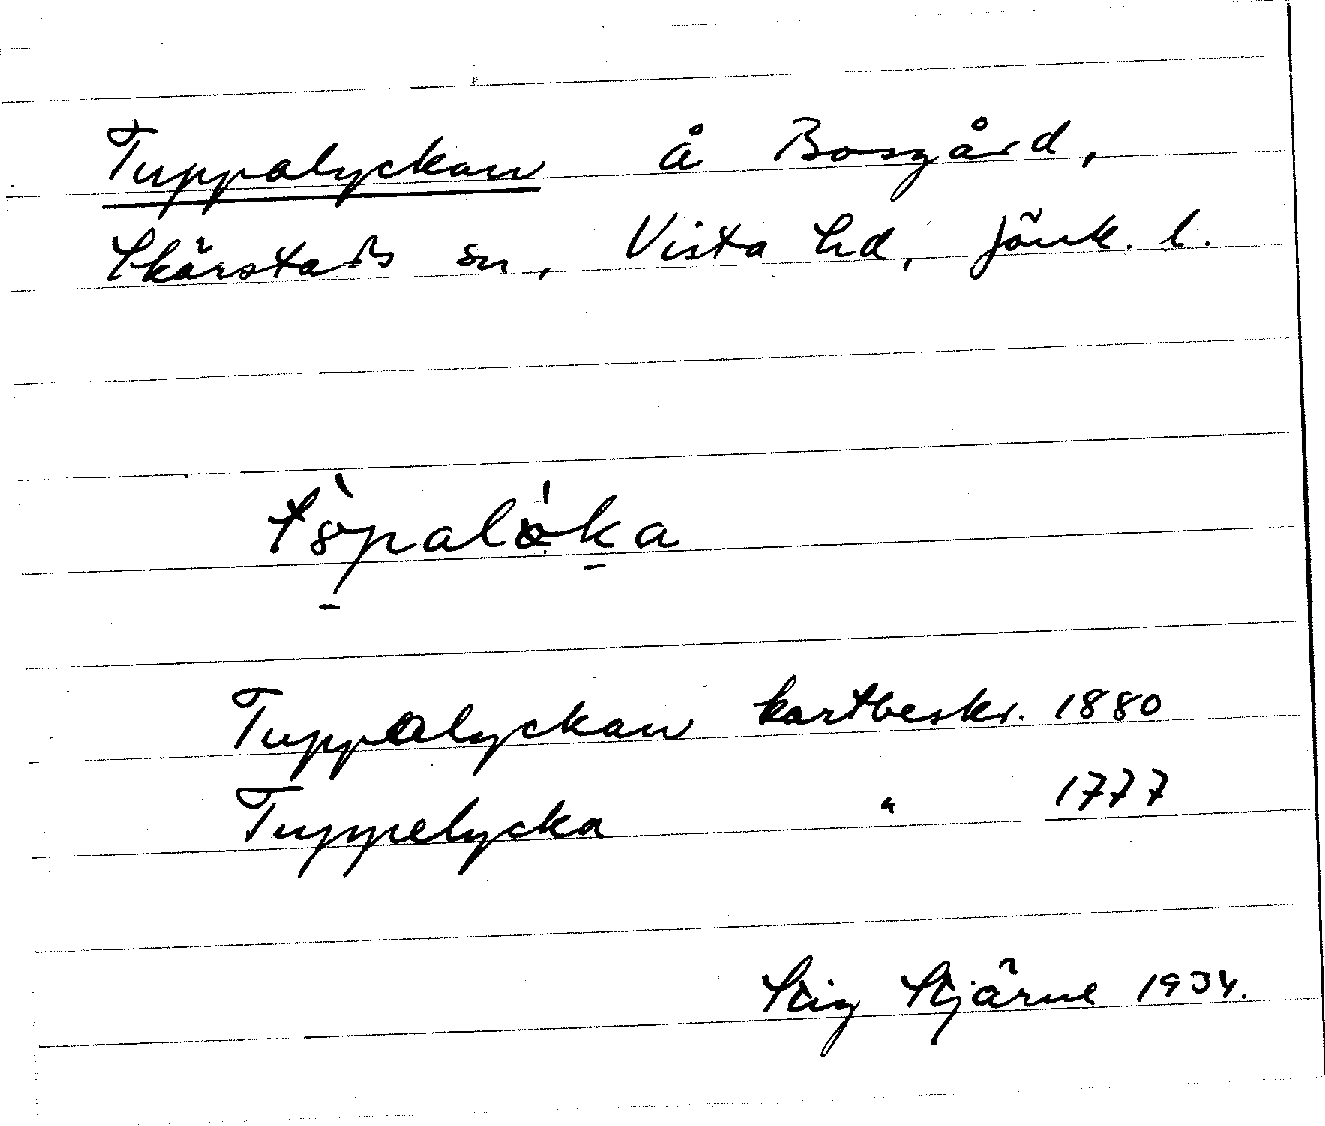 Tuppalyckan å Bosgård,
Skärstads sn, Vista hd, Jönk. l.
Tuppalyckan kartbeskr. 1880
Tuppelycka " 1777
Stig Stjärne 1934.